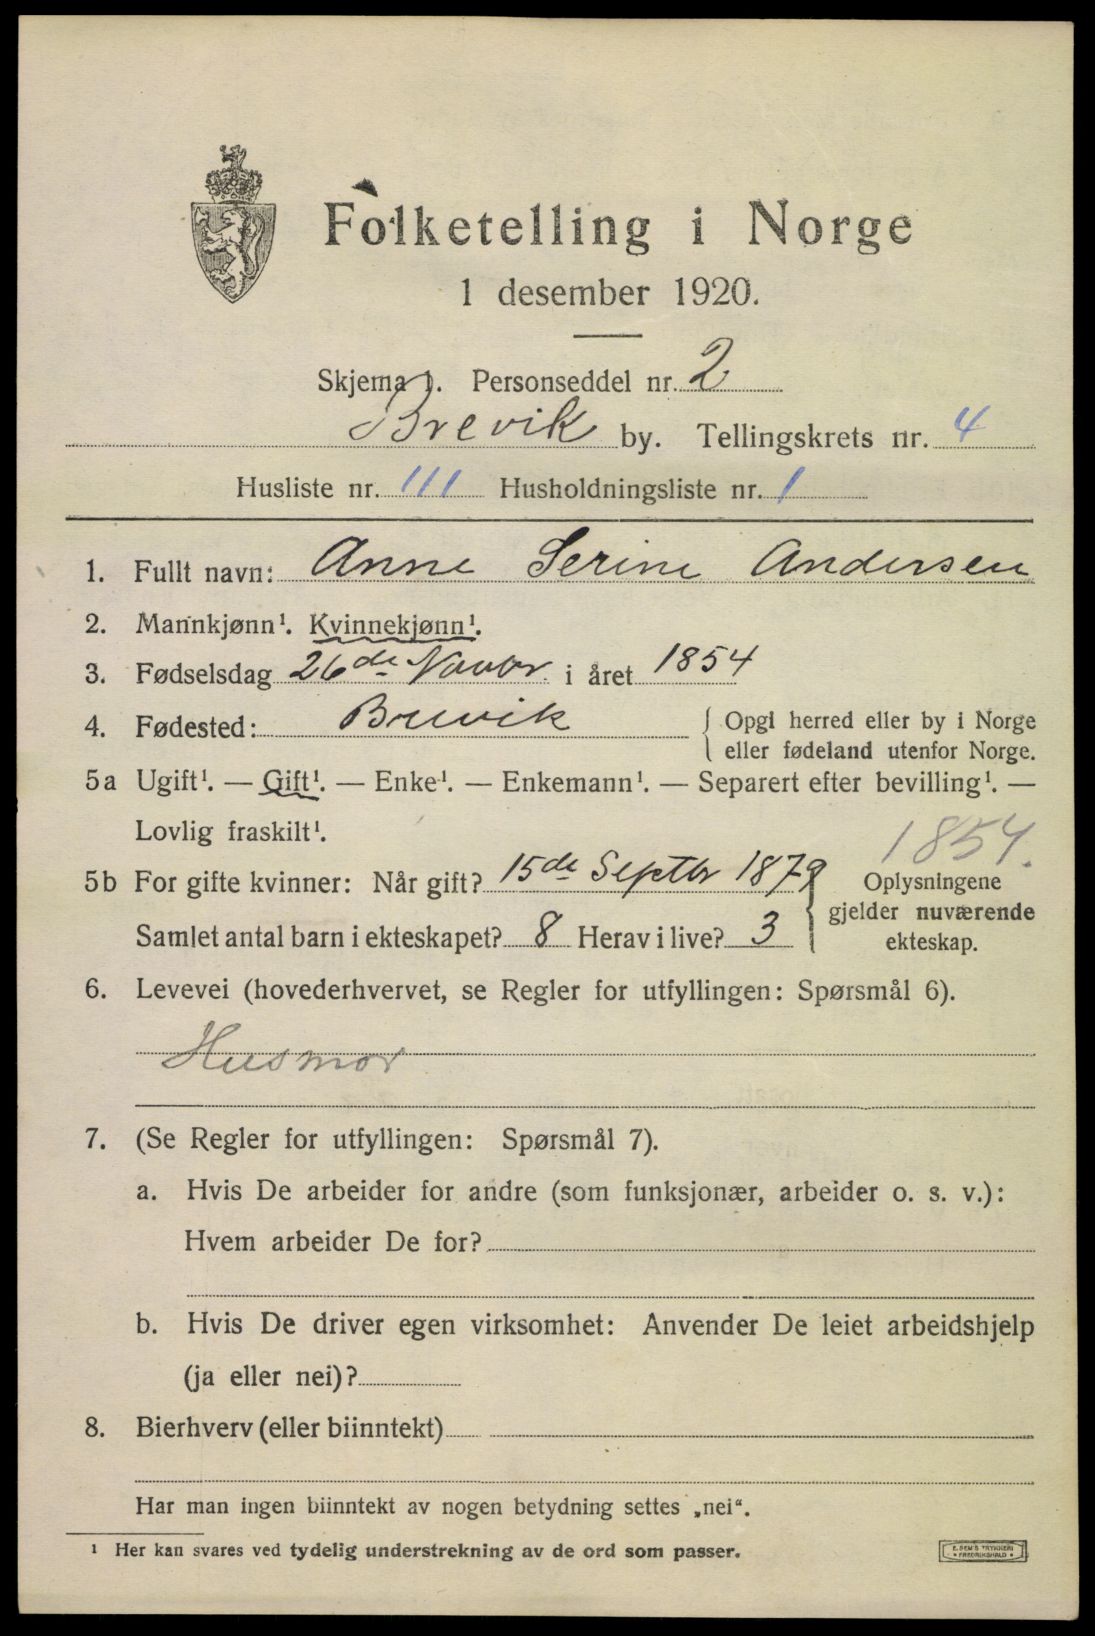 Folketelling i Norge
1 desember 1920.
Skjema 1. Personseddel nr. 2
Brevik by. Tellingskrets nr. 4
Husliste nr. 111 Husholdningsliste nr. 1
1. Fullt navn: Anne Serine Andersen
2. Mannkjønn¹. Kvinnekjønn¹.
3. Fødselsdag 26de Novbr i året 1854
4. Fødested: Brevik { Opgi herred eller by i Norge
eller fødeland utenfor Norge.
5a Ugift¹. — Gift¹. — Enke¹. — Enkemann¹. — Separert efter bevilling¹. —
Lovlig fraskilt¹.
1854.
5b For gifte kvinner: Når gift? 15de Septbr 1879
Samlet antal barn i ekteskapet? 8 Herav i live? 3
Oplysningene
gjelder nuværende
ekteskap.
6. Levevei (hovederhvervet, se Regler for utfyllingen: Spørsmål 6).
Husmor
7. (Se Regler for utfyllingen: Spørsmål 7).
a. Hvis De arbeider for andre (som funksjonær, arbeider o. s. v.):
Hvem arbeider De for?
b. Hvis De driver egen virksomhet: Anvender De leiet arbeidshjelp
(ja eller nei)?
8. Bierhverv (eller biinntekt)
Har man ingen biinntekt av nogen betydning settes „nei“.
¹ Her kan svares ved tydelig understrekning av de ord som passer.
E. SEM'S TRYKKERI
• FREDRIKSHALD •